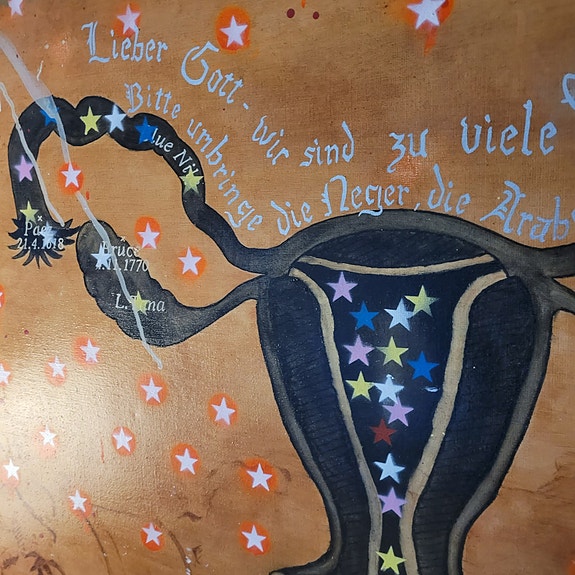 Lieber Gott - wir sind zu viele
Bitte umbringe die Neger, die Arab
lue Nil
Paez
21.4.1618
Bruce
.11.1770
L. Tana